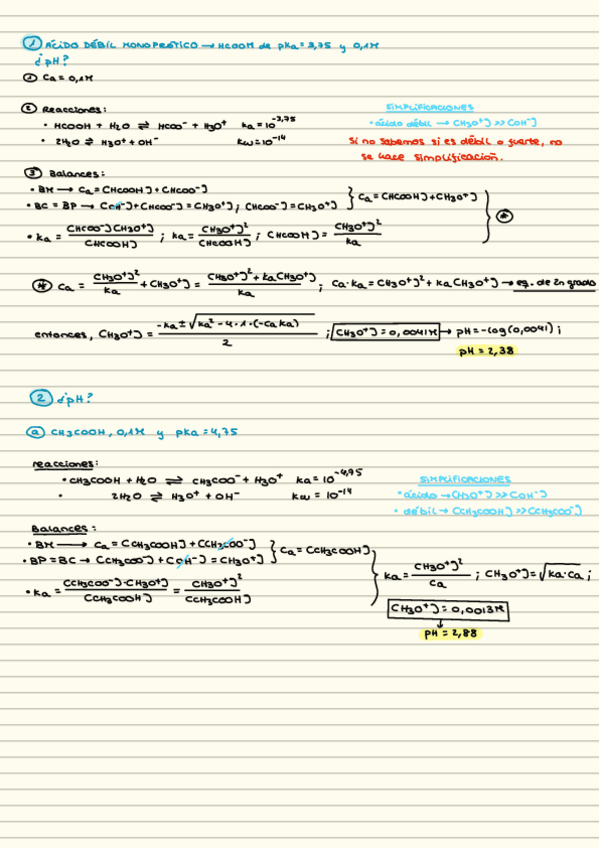 1 ÁCIDO DÉBIL MONOPRÓTICO → HCOOH de pKa = 3,75 y 0,1M
¿pH?
① Ca = 0,1M
② Reacciones:
• HCOOH + H2O ⇌ HCOO⁻ + H3O⁺ Ka = 10^-3,75
• 2H2O ⇌ H3O⁺ + OH⁻ Kw = 10^-14
SIMPLIFICACIONES
• ácido débil → [H3O⁺] >> [OH⁻]
Si no sabemos si es débil o fuerte, no
se hace simplificación.
③ Balances:
• BM → Ca = [HCOOH] + [HCOO⁻]
• BC = BP → [OH⁻] + [HCOO⁻] = [H3O⁺] ; [HCOO⁻] = [H3O⁺]
} Ca = [HCOOH] + [H3O⁺]
• Ka = [HCOO⁻][H3O⁺] / [HCOOH] ; Ka = [H3O⁺]² / [HCOOH] ; [HCOOH] = [H3O⁺]² / Ka
} *
* Ca = [H3O⁺]² / Ka + [H3O⁺] = ([H3O⁺]² + Ka[H3O⁺]) / Ka ; Ca·Ka = [H3O⁺]² + Ka[H3O⁺] → eq. de 2n grado
entonces, [H3O⁺] = (-Ka ± √(Ka² - 4·1·(-CaKa))) / 2 ; [H3O⁺] = 0,0041M → pH = -log(0,0041) ;
pH = 2,38
2 ¿pH?
ⓐ CH3COOH, 0,1M y pKa = 4,75
reacciones:
• CH3COOH + H2O ⇌ CH3COO⁻ + H3O⁺ Ka = 10^-4,75
• 2H2O ⇌ H3O⁺ + OH⁻ Kw = 10^-14
SIMPLIFICACIONES
• ácido → [H3O⁺] >> [OH⁻]
• débil → [CH3COOH] >> [CH3COO⁻]
Balances:
• BM → Ca = [CH3COOH] + [CH3COO⁻]
• BP = BC → [CH3COO⁻] + [OH⁻] = [H3O⁺]
} Ca = [CH3COOH]
• Ka = [CH3COO⁻]·[H3O⁺] / [CH3COOH] = [H3O⁺]² / [CH3COOH]
} Ka = [H3O⁺]² / Ca ; [H3O⁺] = √Ka·Ca ;
[H3O⁺] = 0,0013M
pH = 2,88